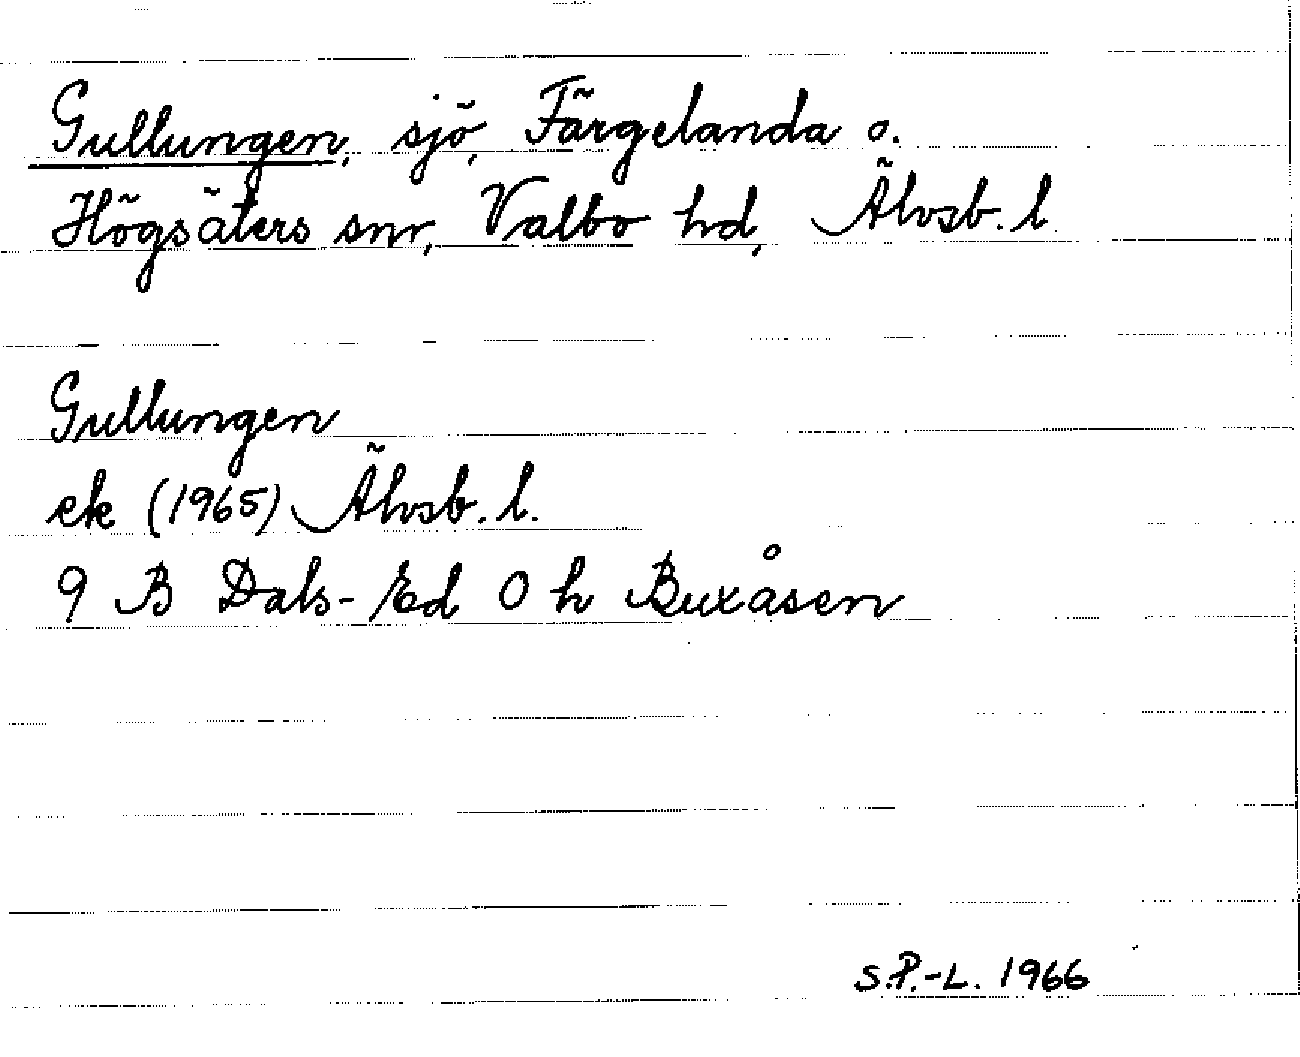 Gullungen, sjö, Färgelanda o.
Högsäters snr, Valbo hd, Älvsb. l.
Gullungen
ek (1965) Älvsb. l.
9 B Dals-Ed 0 h Buxåsen
S.P.-L. 1966